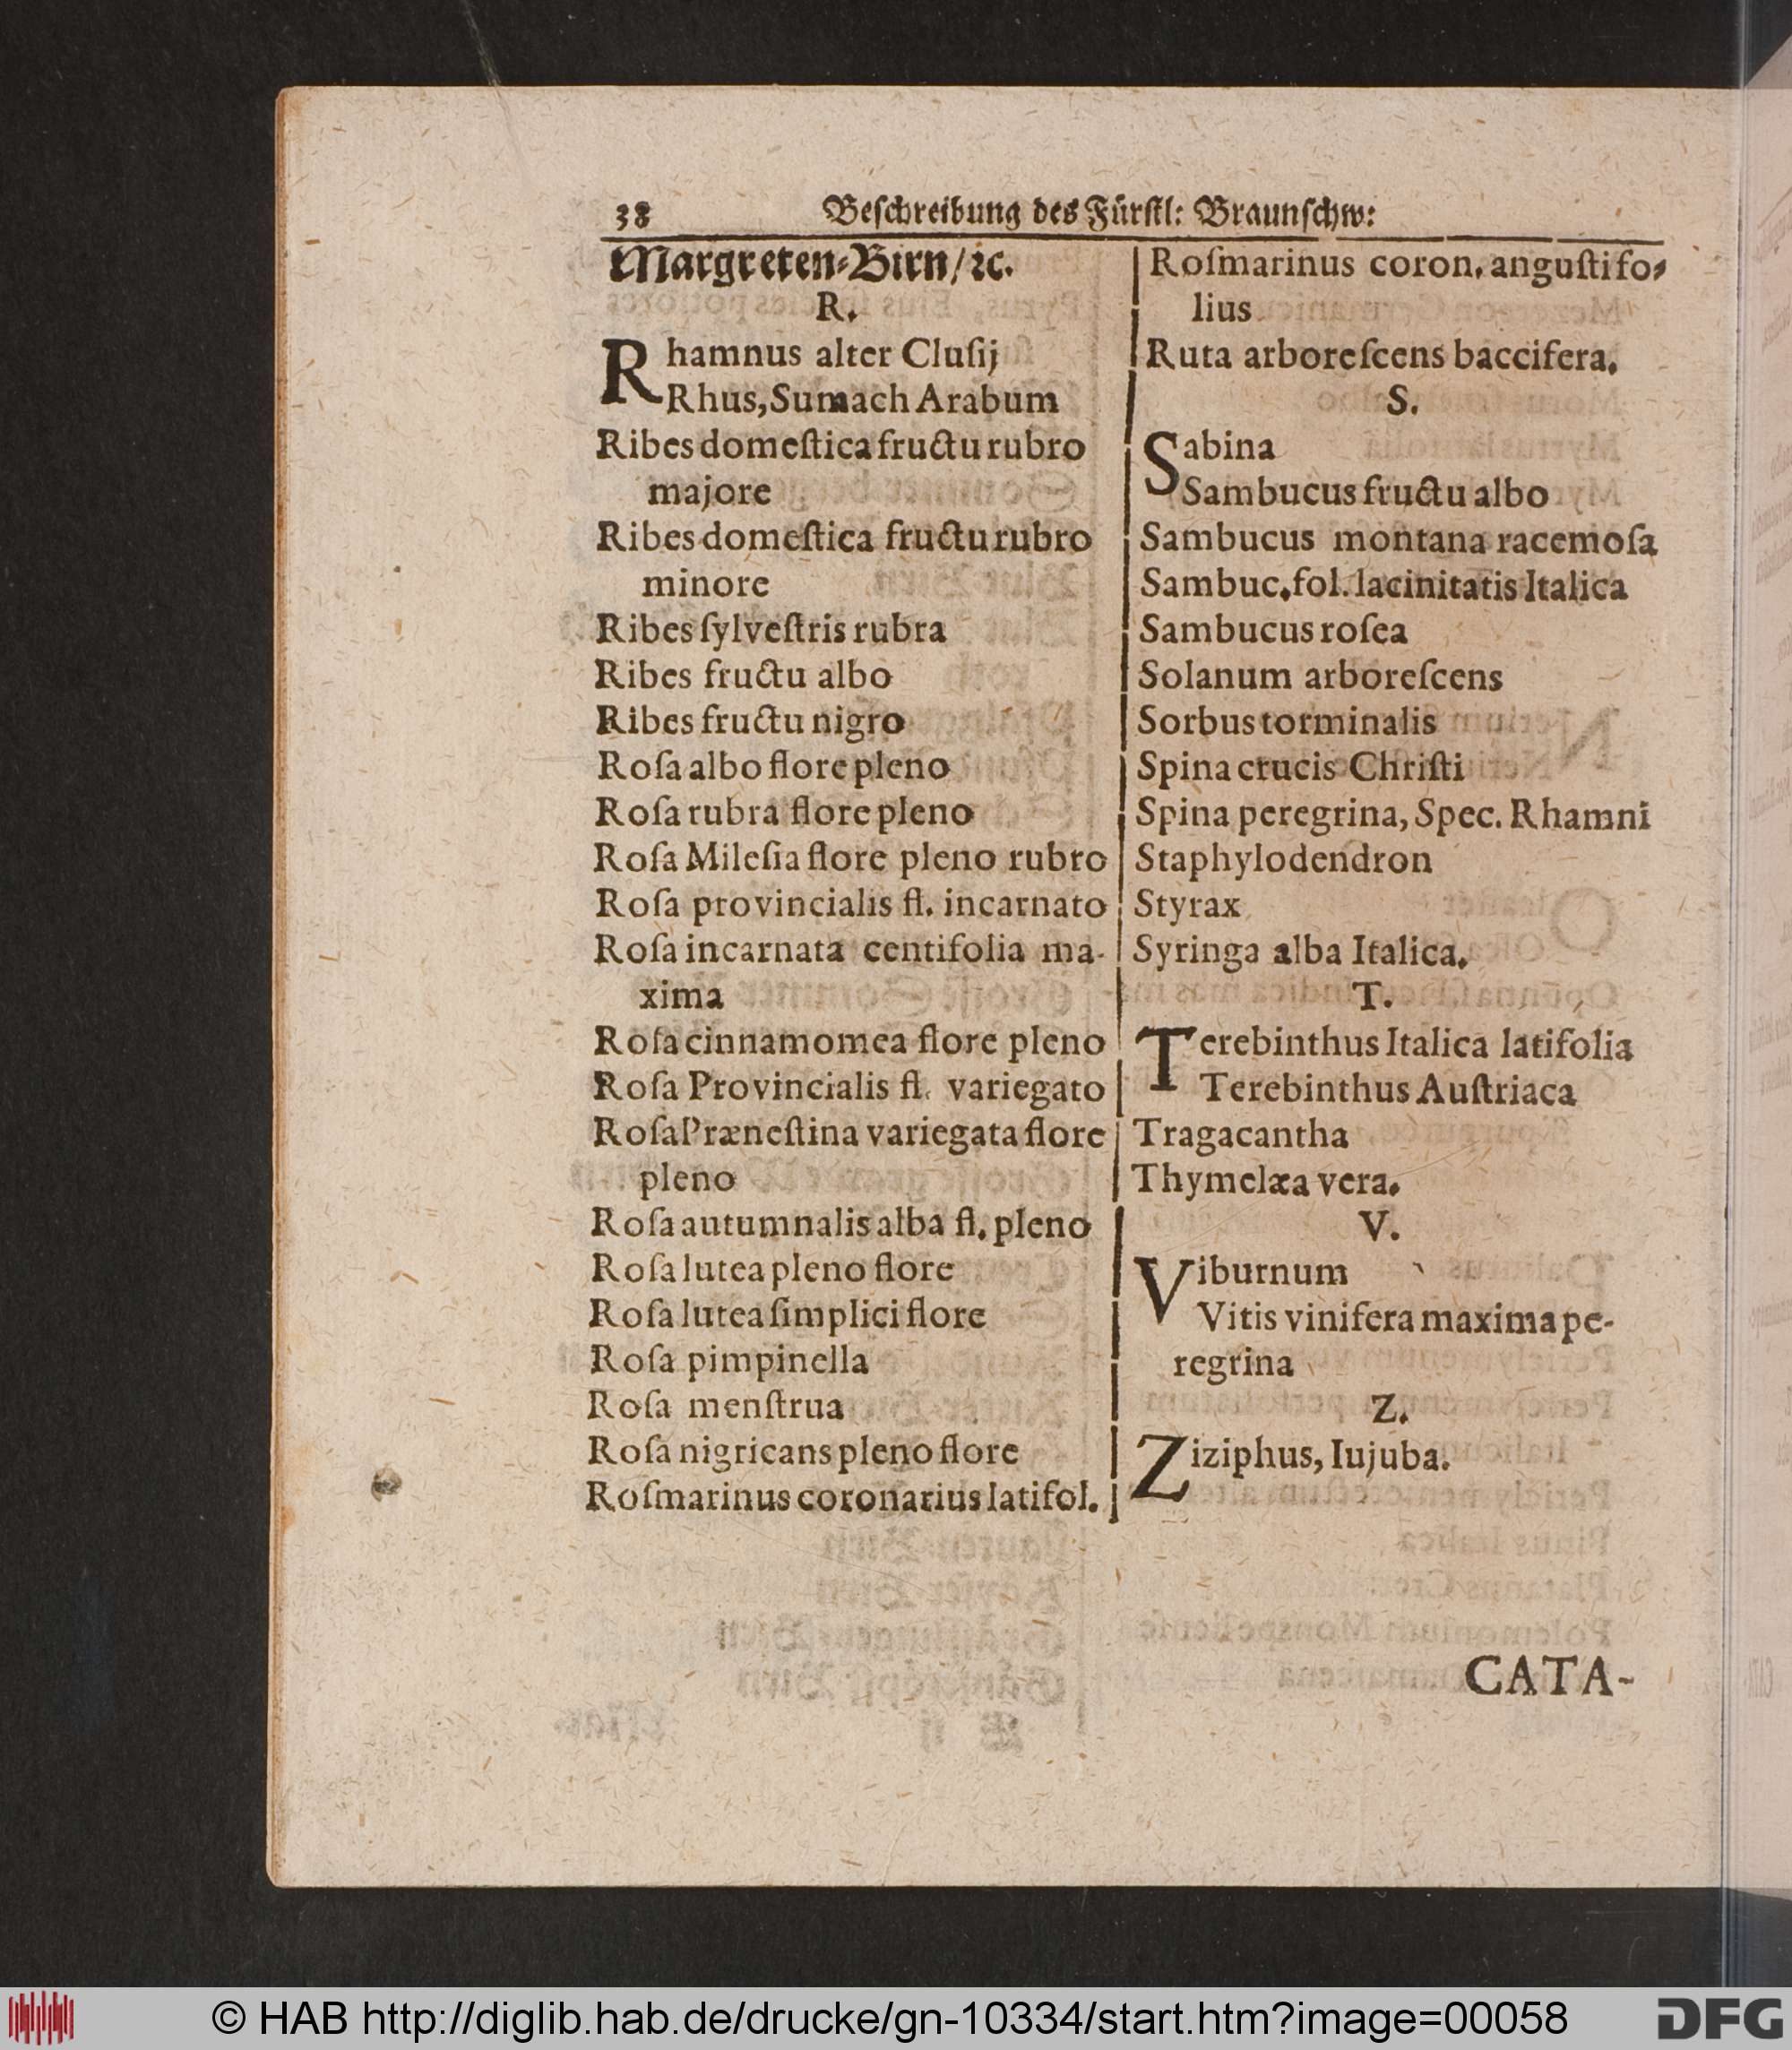 38 Beſchreibung des Fürſtl: Braunſchw:
Margreten-Birn/ ꝛc.
R.
Rhamnus alter Cluſij
Rhus, Sumach Arabum
Ribes domeſtica fructu rubro
majore
Ribes domeſtica fructu rubro
minore
Ribes ſylveſtris rubra
Ribes fructu albo
Ribes fructu nigro
Roſa albo flore pleno
Roſa rubra flore pleno
Roſa Mileſia flore pleno rubro
Roſa provincialis fl. incarnato
Roſa incarnata centifolia ma-
xima
Roſa cinnamomea flore pleno
Roſa Provincialis fl. variegato
Roſa Præneſtina variegata flore
pleno
Roſa autumnalis alba fl. pleno
Roſa lutea pleno flore
Roſa lutea ſimplici flore
Roſa pimpinella
Roſa menſtrua
Roſa nigricans pleno flore
Roſmarinus coronarius latifol.
Roſmarinus coron. anguſtifo-
lius
Ruta arboreſcens baccifera.
S.
Sabina
Sambucus fructu albo
Sambucus montana racemoſa
Sambuc. fol. lacinitatis Italica
Sambucus roſea
Solanum arboreſcens
Sorbus torminalis
Spina crucis Chriſti
Spina peregrina, Spec. Rhamni
Staphylodendron
Styrax
Syringa alba Italica.
T.
Terebinthus Italica latifolia
Terebinthus Auſtriaca
Tragacantha
Thymelæa vera.
V.
Viburnum
Vitis vinifera maxima pe-
regrina
Z.
Ziziphus, Iujuba.
CATA-
© HAB http://diglib.hab.de/drucke/gn-10334/start.htm?image=00058
DFG